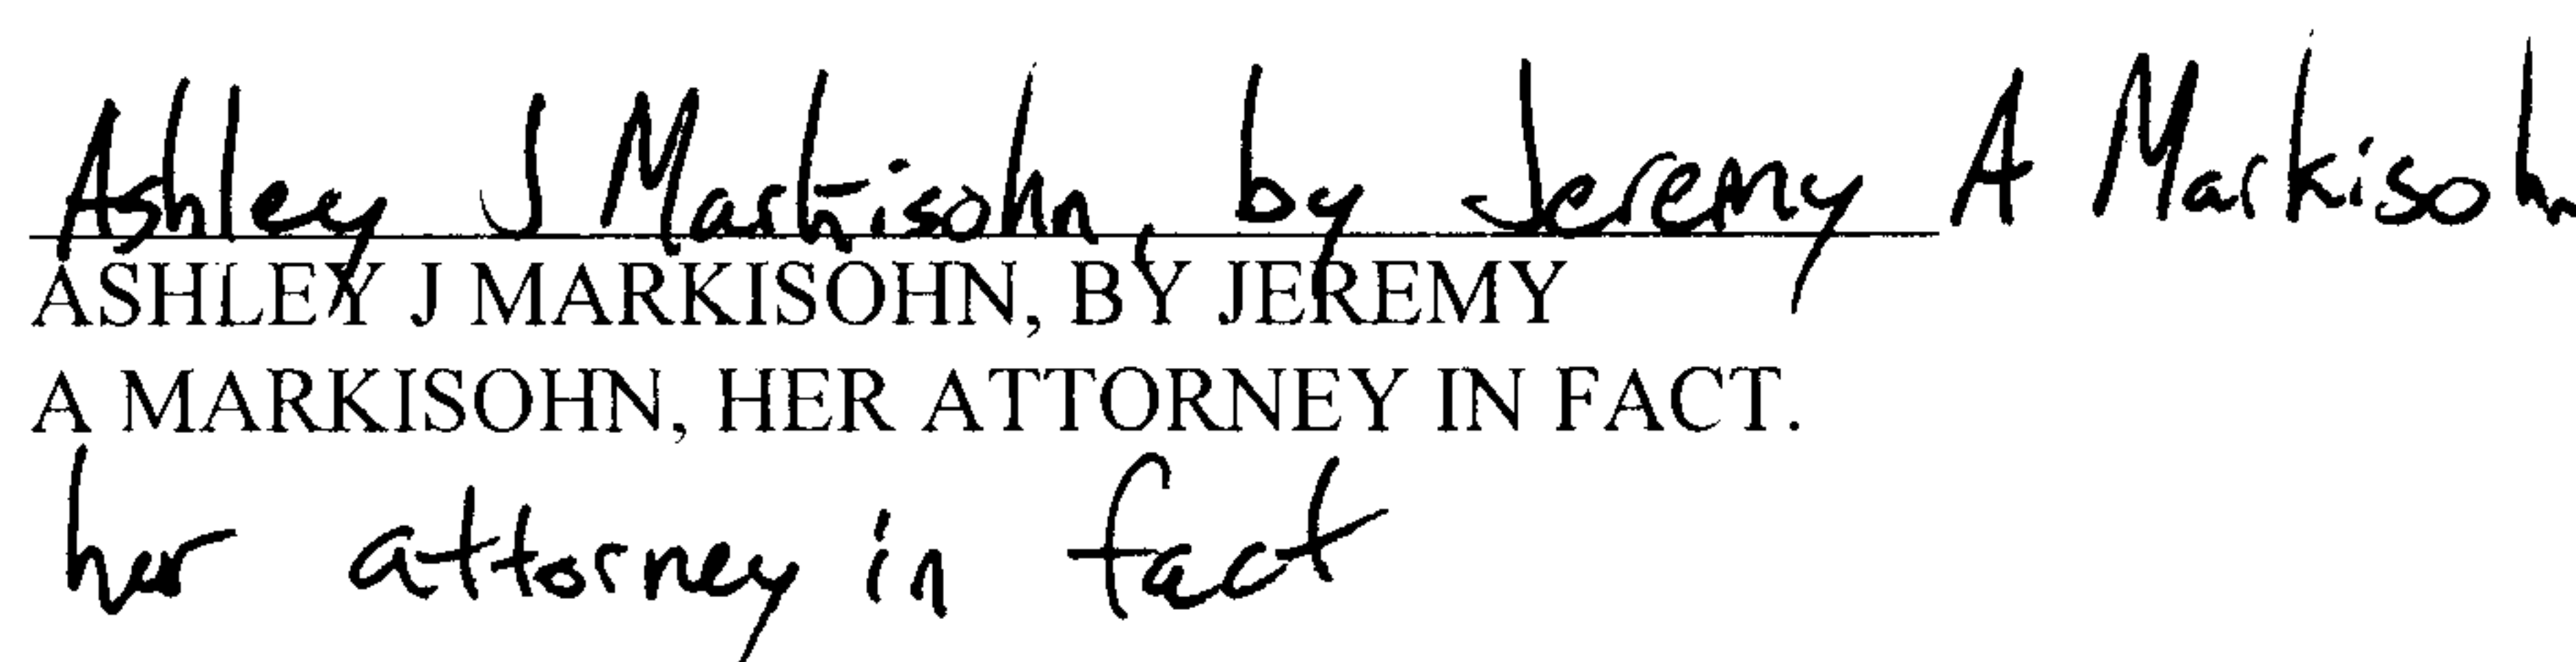 Ashley J Markisohn, by Jeremy A Markisohn
ASHLEY J MARKISOHN, BY JEREMY
A MARKISOHN, HER ATTORNEY IN FACT.
her attorney in fact